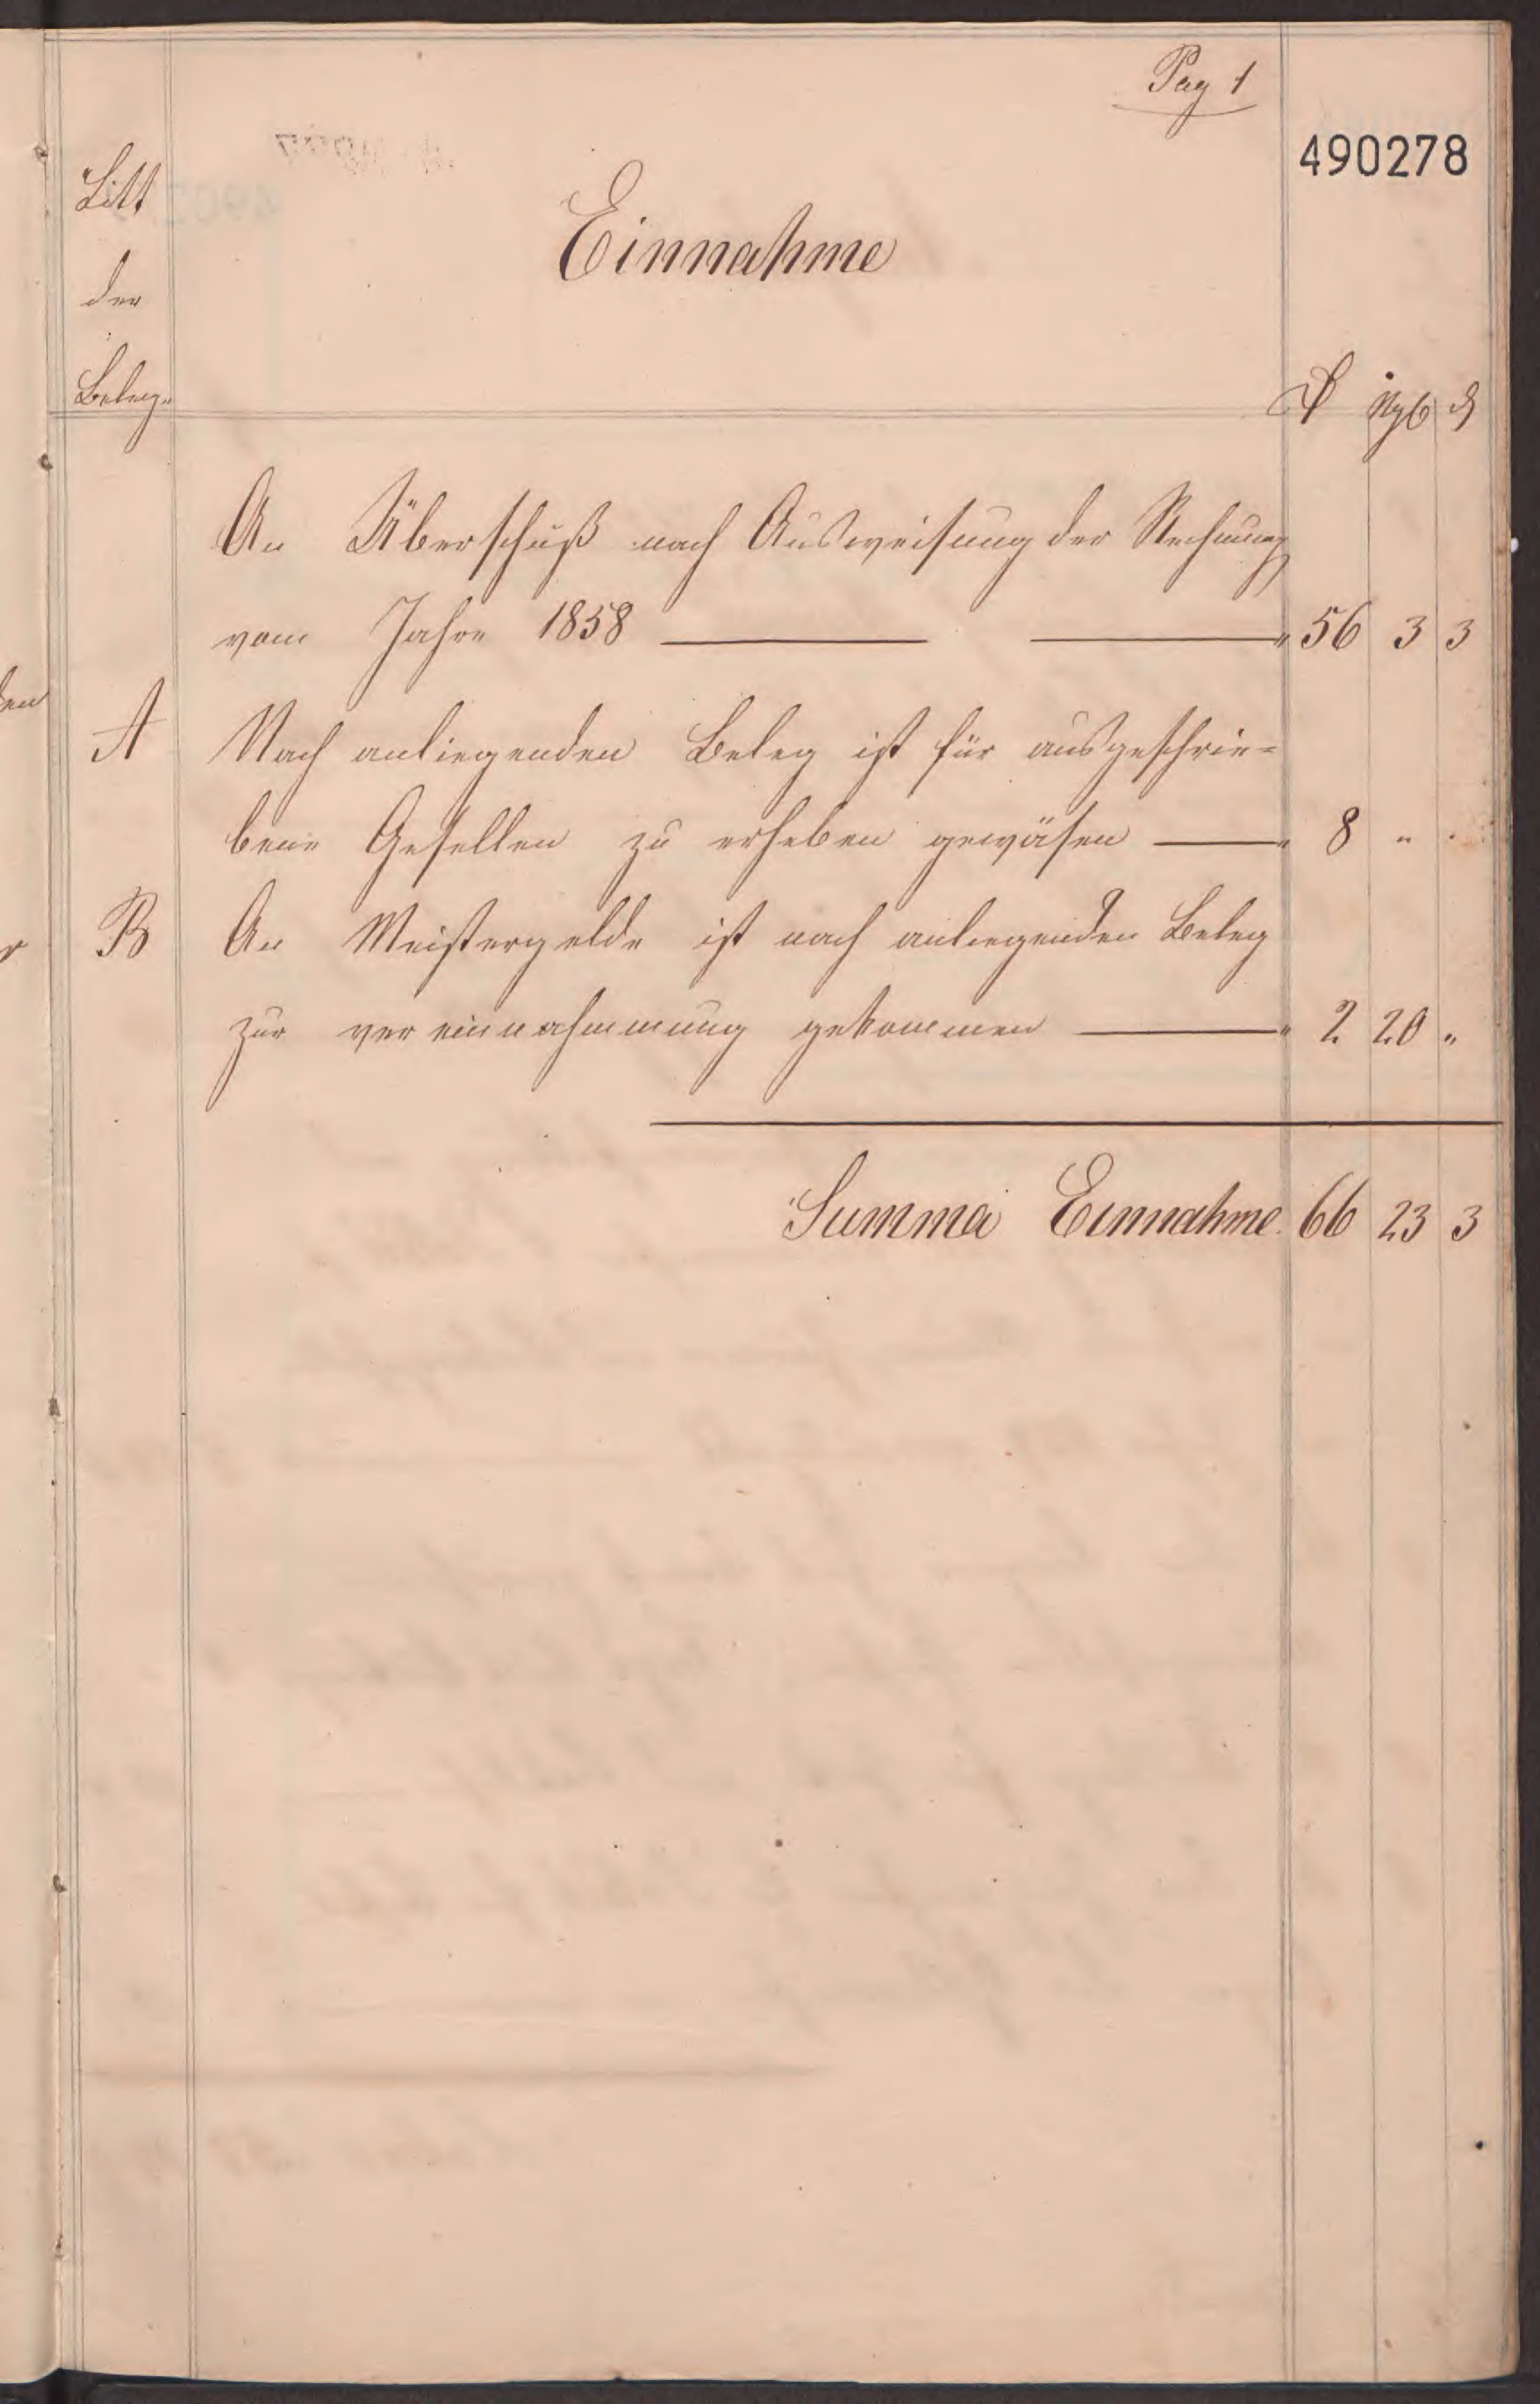 Pag 1
490278
Litt
der
Beleg.
Einnahme
₰ Ngr ₰
An Überschuß nach Ausweisung der Rechnung
vom Jahre 1858 — — " 56 3 3
A Nach anliegenden Beleg ist für ausgeschrie=
bene Gesellen zu erheben gewäsen — " 8 " "
B An Meistergelde ist nach anliegenden Beleg
zur vereinnahmmung gekommen — " 2 20 "
Summa Einnahme. 66 23 3